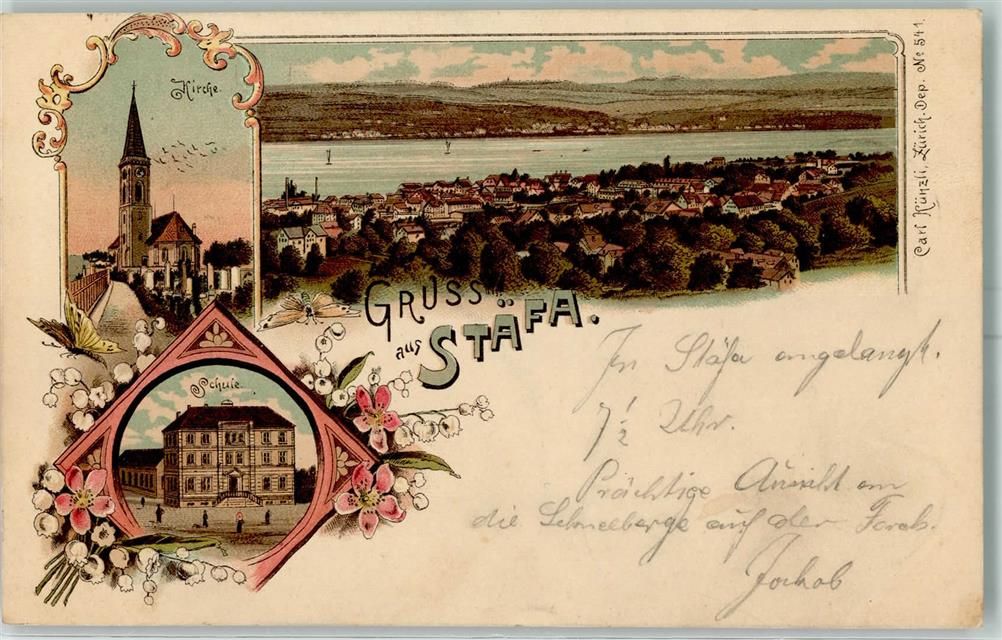 Kirche.
Carl Künzli, Zürich. Dep. No 541.
GRUSS
aus STÄFA.
Schule.
In Stäfa angelangt.
7 1/2 Uhr.
Prächtige Aussicht an
die Schneeberge auf der Forch.
Jackob